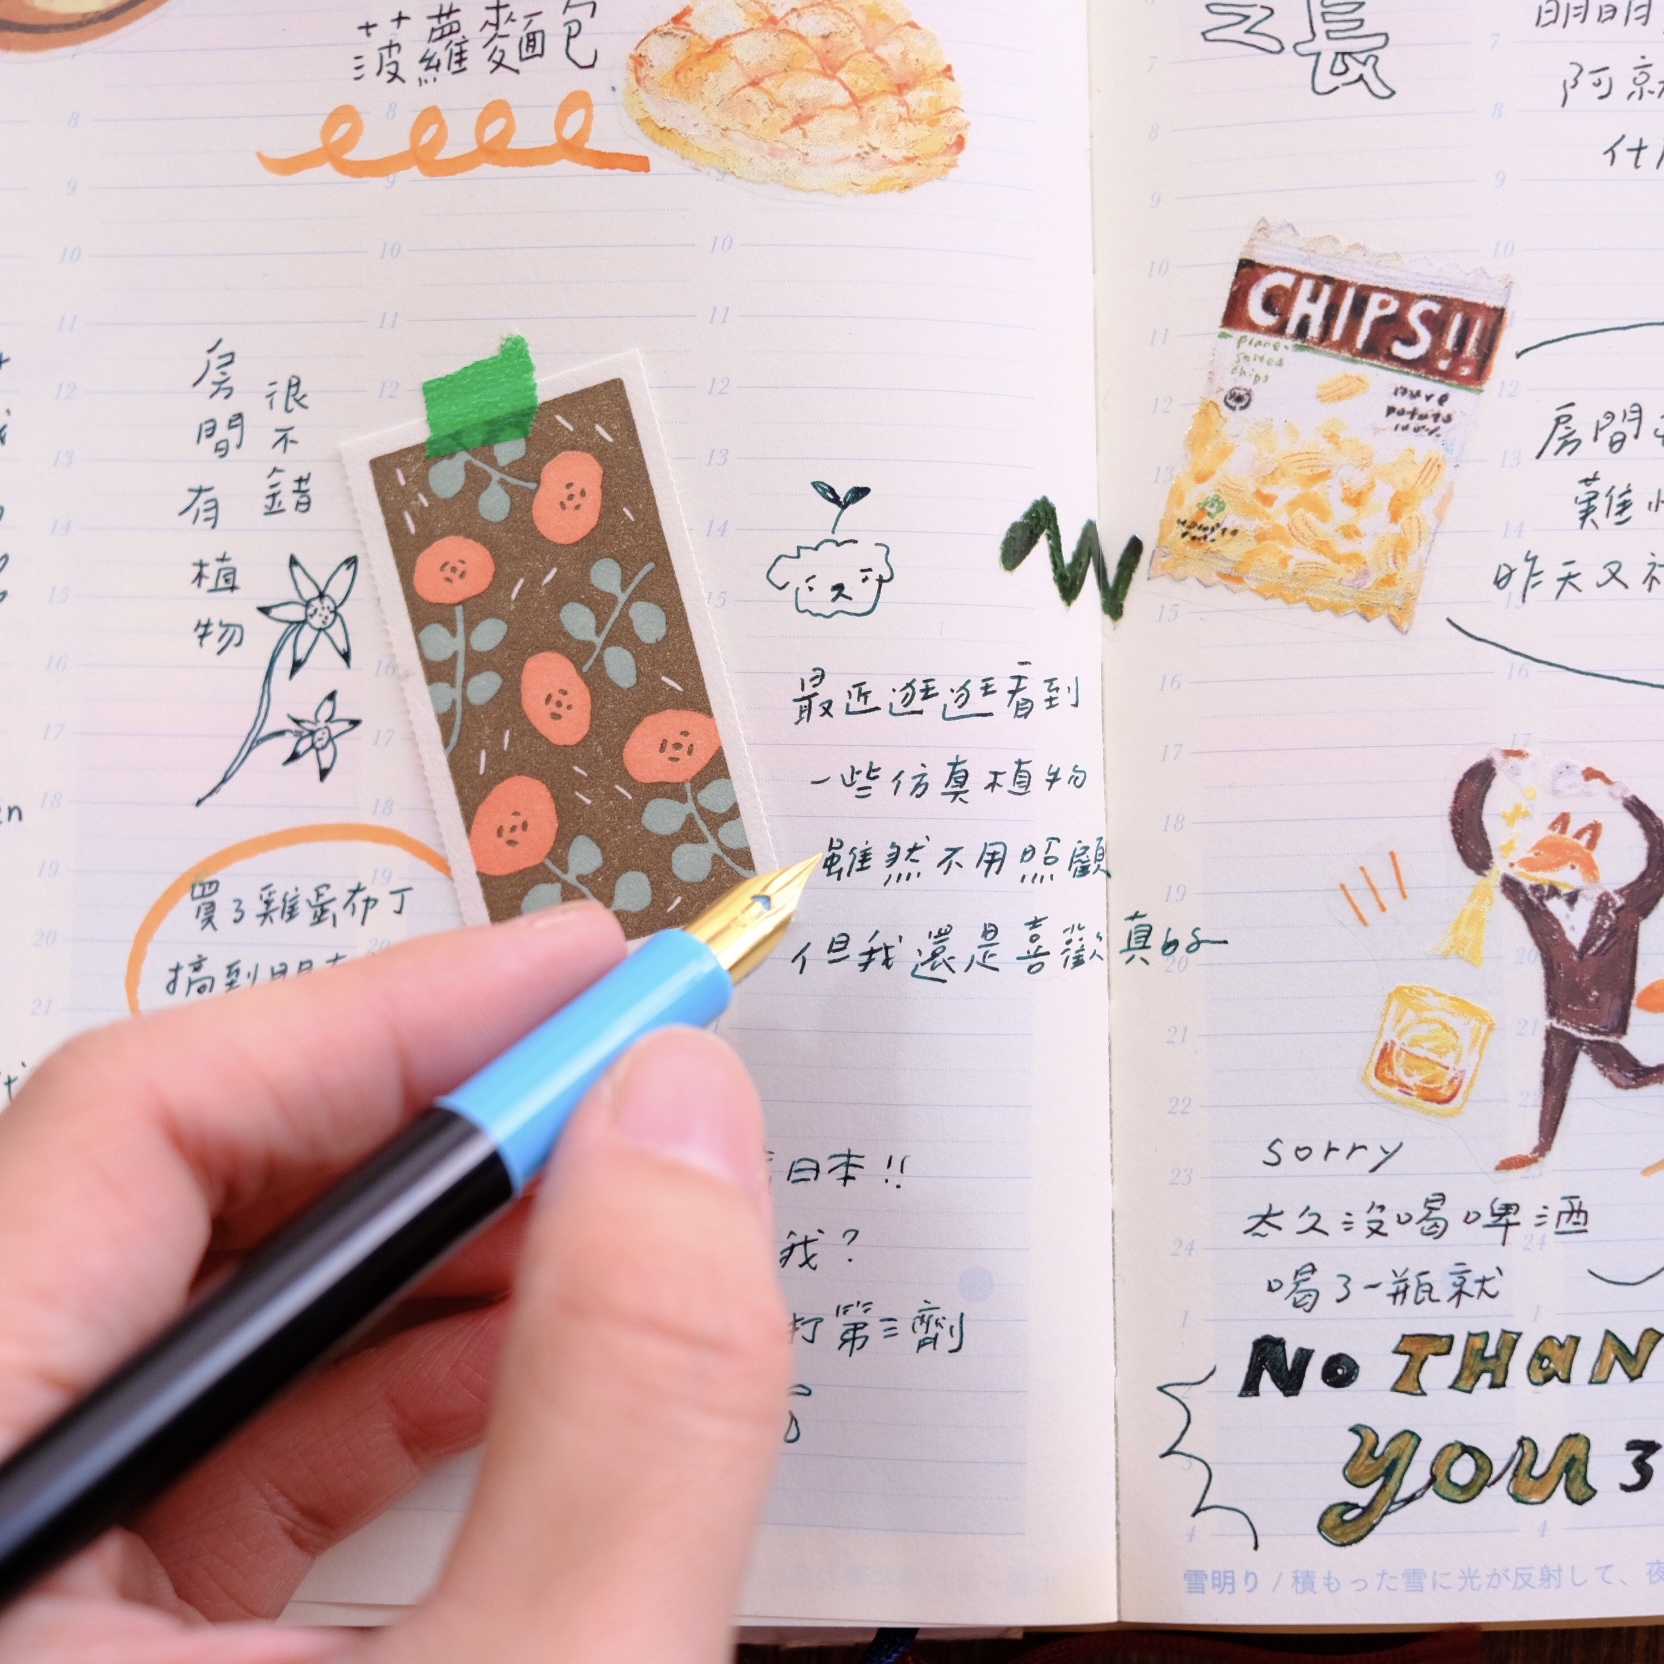 菠蘿麵包
房間有植物
很不錯
買了雞蛋布丁
搞到明天
最近逛逛看到
一些仿真植物
雖然不用照顧
但我還是喜歡真的
日本!!
我?
打第三劑
之長
明明
阿京
什
CHIPS!!
pure
potato
100%
房間
難
昨天又
sorry
太久沒喝啤酒
喝了一瓶就
No THAN
you 了
雪明り / 積もった雪に光が反射して、夜